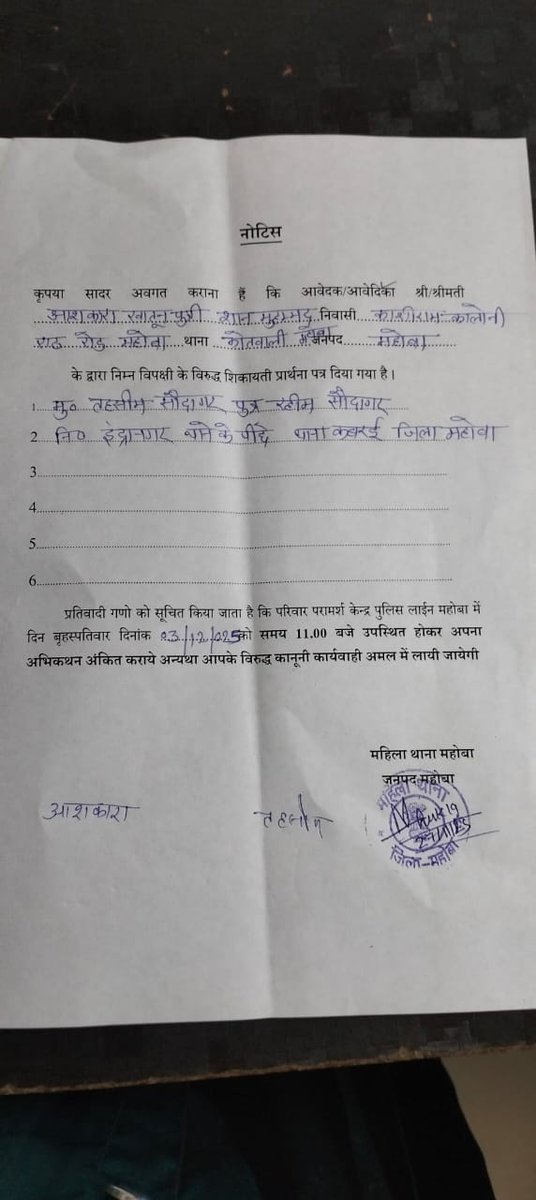 नोटिस
कृपया सादर अवगत कराना है कि आवेदक/आवेदिका श्री/श्रीमती
आशकारा खातून पुत्री शान मुहम्मद निवासी काशीराम कालोनी
राठ रोड महोबा थाना कोतवाली जनपद महोबा
के द्वारा निम्न विपक्षी के विरुद्ध शिकायती प्रार्थना पत्र दिया गया है।
1. मु० तहसीम सौदागर पुत्र रहीम सौदागर
2. नि० इंद्रानगर थाने के पीछे थाना कबरई जिला महोबा
3.
4.
5.
6.
प्रतिवादी गणो को सूचित किया जाता है कि परिवार परामर्श केन्द्र पुलिस लाईन महोबा में
दिन बृहस्पतिवार दिनांक 03/12/025 को समय 11.00 बजे उपस्थित होकर अपना
अभिकथन अंकित कराये अन्यथा आपके विरुद्ध कानूनी कार्यवाही अमल में लायी जायेगी
महिला थाना महोबा
जनपद महोबा
महिला थाना
आशकारा
जिला-महोबा